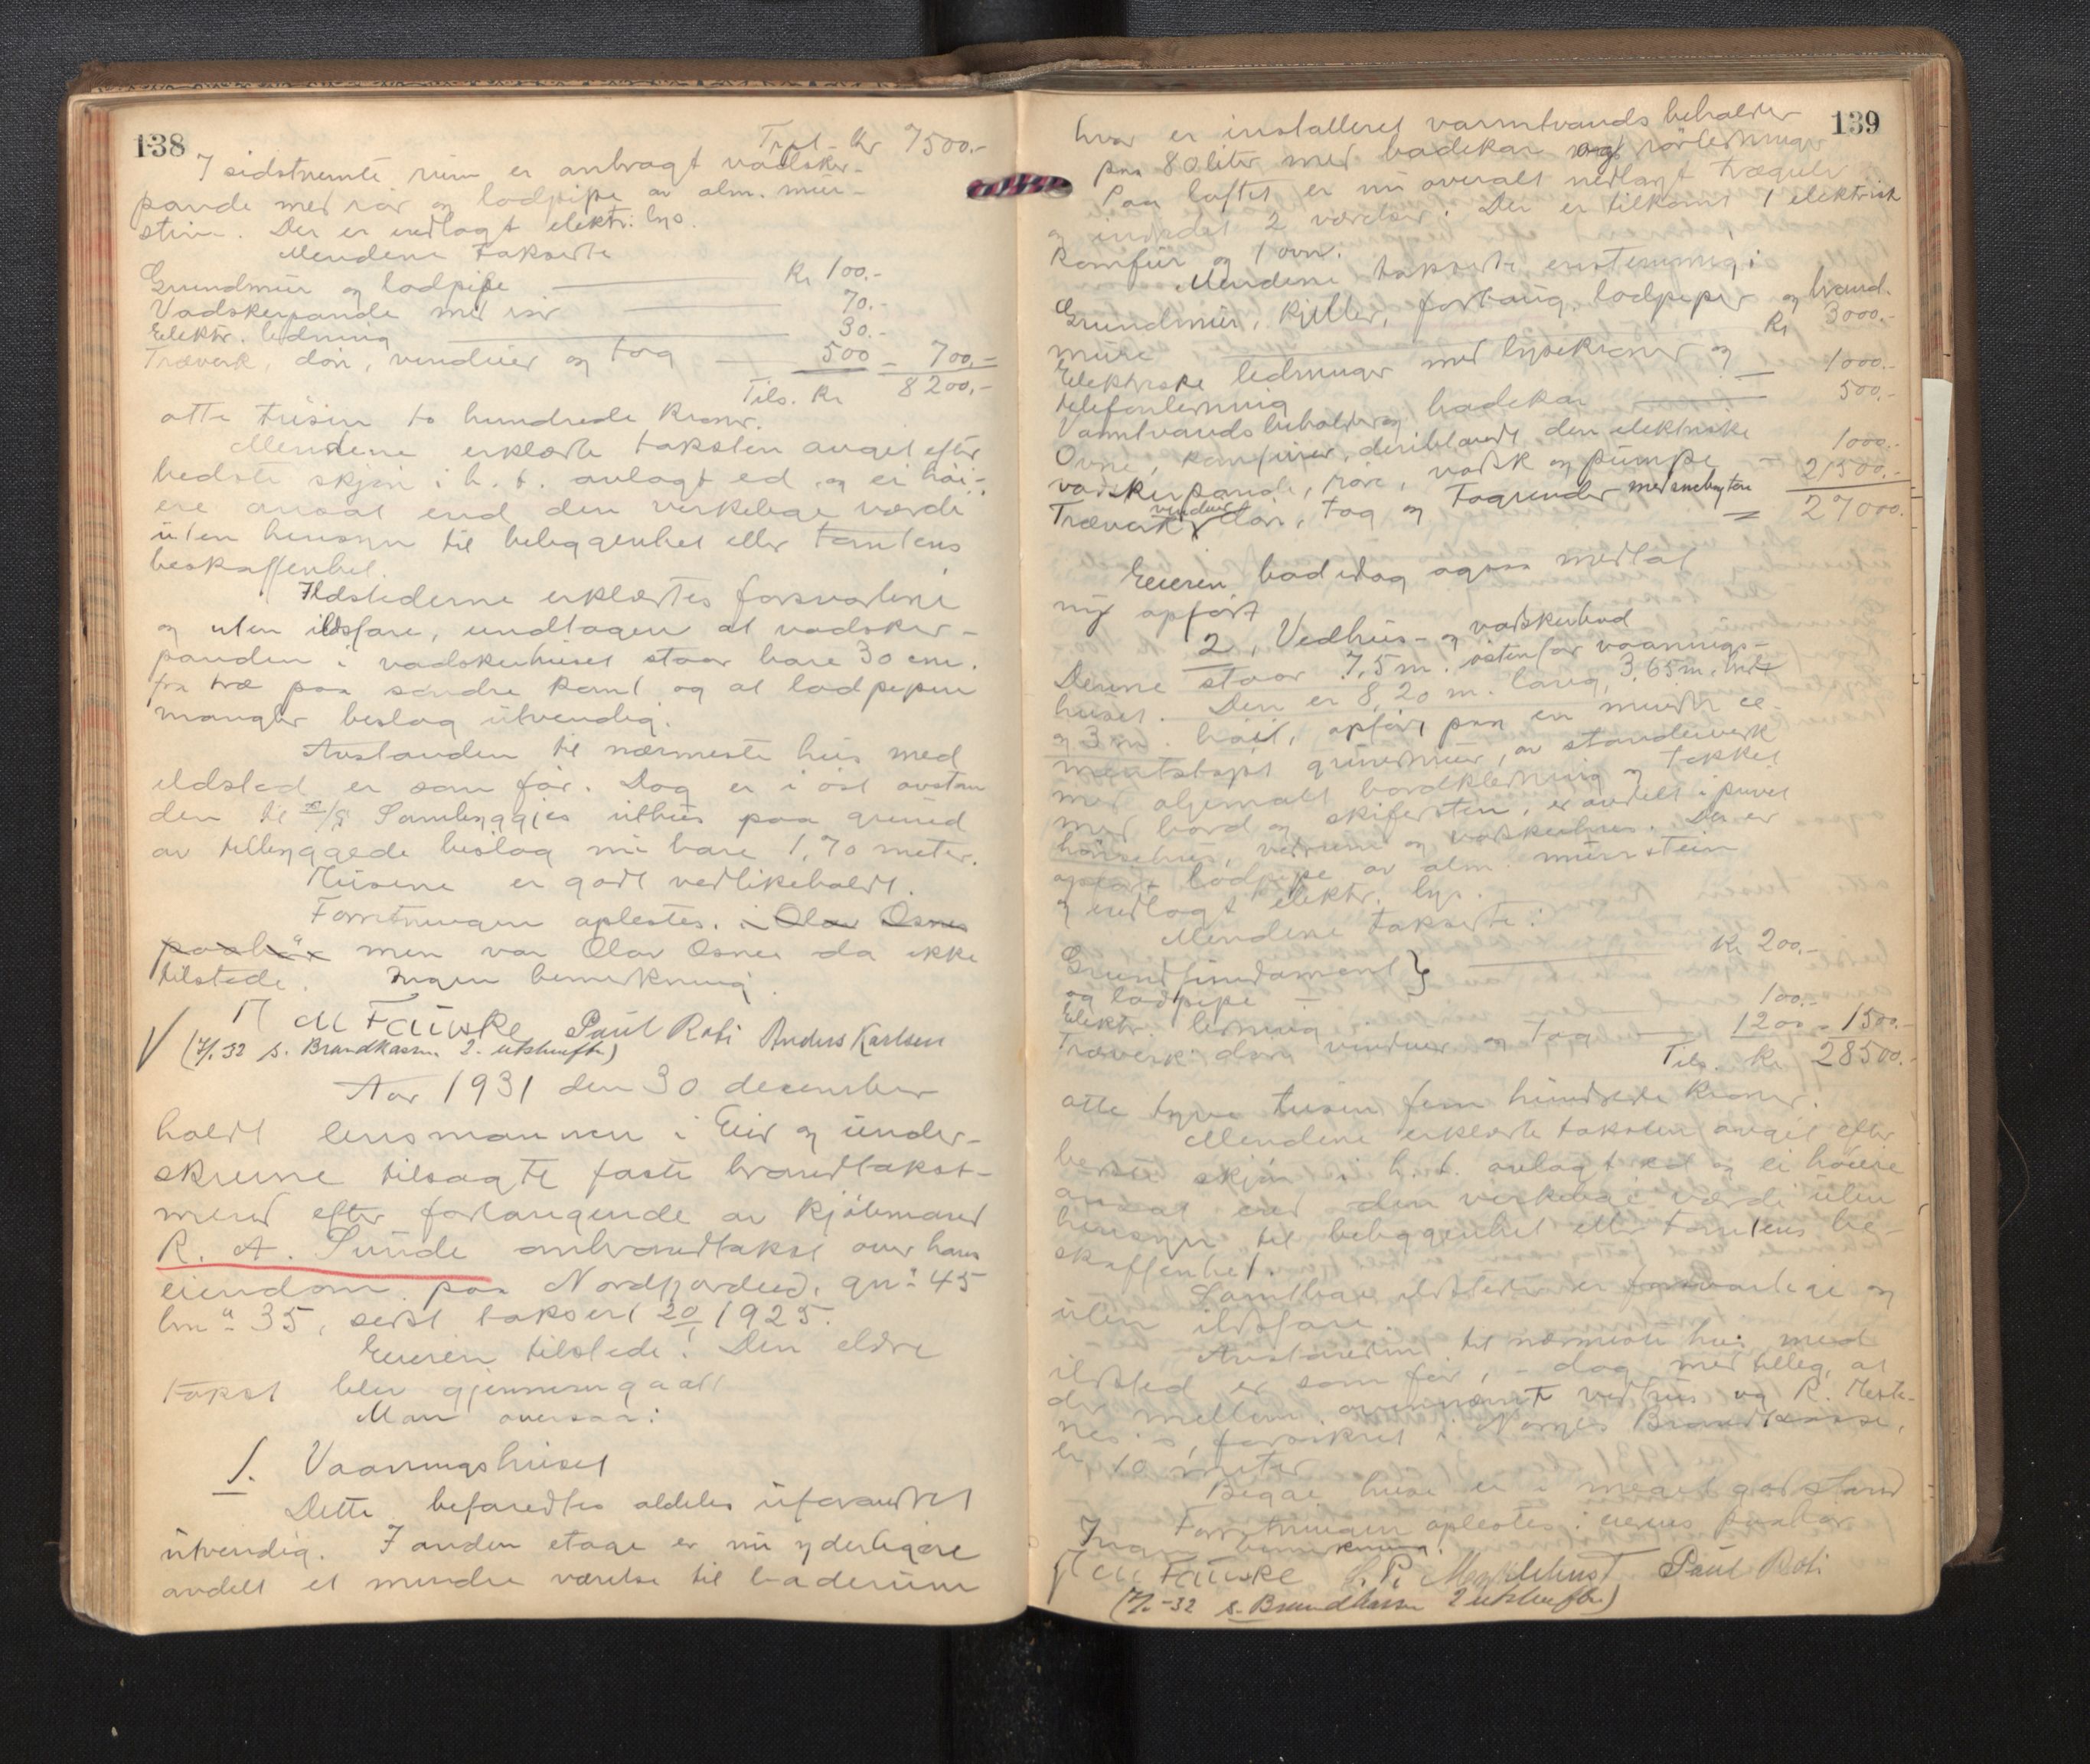 138
Trpt. Kr 7500.-
I sidstnemte rum er anbragt vadsker-
pande med rør og lodpipe av alm. mur-
stein. Der er indlagt elektr. lys.
Mendene takserte
Grundmur og lodpipe Kr 100.-
Vadskerpande med rør 70.-
Elektr. ledning 30.-
Træverk, dør, vinduer og tag 500 - 700.-
Tils. Kr 8200.-
otte tusin to hundrede kroner.
Mendene erklærte taksten avget efter
bedste skjøn i h. t. avlagt ed og ei høi-
ere ansat end den verkelege værdi
uten hensyn til beliggenhet eller tomtens
beskaffenhet.
Ildstederne erklærtes forsvarlige
og uten ildsfare, undtagen at vadsker-
panden i vadskerhuset staar bare 30 cm.
fra træ paa søndre kant og at lodpipen
mangler beslag utvendig.
Avstanden til nærmeste hus med
ildsted er som før. Dog er i øst avstan
den til Sambyggjes uthus paa grund
av tilbyggede beslag nu bare 1,70 meter.
Husene er godt vedlikeholdt.
Forretningen oplestes. i Olav Osnes
paahør men var Olav Osnes da ikke
tilstede. Ingen bemerkning.
M Fauske Paul Roti Anders Karlsen
(7/1.32 s. Brandkassen 2. utskrifter)
Aar 1931 den 30 december
holdt lensmannen i Eid og under-
skrevne tilsagte faste brandtakst-
mend efter forlangende av kjøbmand
R. A. Sunde ombrandtakst over hans
eiendom paa Nordfjordeid, gnr 45
bnr 35, sidst taksert 20/1 1925.
Eieren tilstede. Den eldre
takst blev gjennemgaatt
Man overser:
1. Vaaningshuset
Dette befandtes aldeles uforandret
utvendig. I anden etage er nu yderligere
avdelt et mindre værelse til baderum
139
hvor er installeret varmtvands beholder
paa 80 liter med badekar og rørledninger
Paa loftet er nu overalt nedlagt trægulv
og indredet 2 værelser. Der er tilkomt 1 elektrisk
komfur og 1 ovn.
Mendene takserte enstemmig:
Grundmur, kjeller, forhaug, lodpiper og brand-
mure Kr 3000.-
Elektriske ledninger med lysekroner og
telefonledning 1000.-
Varmtvandsbeholder og badekar 500.-
Ovne, komfurer, deriblandt den elektriske
vadskerpande, rør, vadsk og pumpe 1000.-
Træverk, vinduer dør, tag og tagrender med snebrytere 21500.-
= 27000.-
Eieren bad idag ogsaa medtat
ny opført
2. Vedhus- og vadskerbod
Denne staar 7,5 m. østenfor vaanings-
huset. Den er 8,20 m. lang, 3,65 m. bred
og 3 m. høit, opført paa en mindre ce-
mentstøpt grundmur, av stenderverk
med oljemalt bordklædning og tækket
med bord og skifersten, er avdelt i privet
hønsehus, vedrum og vadskerhus. Der er
opført lodpipe av alm. murstein
og indlagt elektr. lys.
Mendene takserte:
Grundfundament }
og lodpipe Kr 200.-
Elektr. ledning 100.-
Træverk dør, vinduer og tag 1200 - 1500.-
Tils. Kr 28500.-
otte tyve tusin fem hundrede kroner.
Mendene erklærte taksten avget efter
bedste skjøn i h. t. avlagt ed og ei høiere
ansat end den verkelege værdi uten
hensyn til beliggenhet eller tomtens be-
skaffenhet.
Samtlige ildsteder er forsvarlige og
uten ildsfare.
Avstanden til nærmeste hus med
ildsted er som før, - dog med tilleg, at
der mellem ovennemt vedhus og R. Meste-
nes's, forsikret i Norges Brandkasse,
er 10 meter
Begge huse er i meget god stand
Forretningen oplestes i eierens paahør
Ingen bemerkning.
M Fauske Paul Roti
(7/1-32 s. Brandkassen 2 utskrifter)